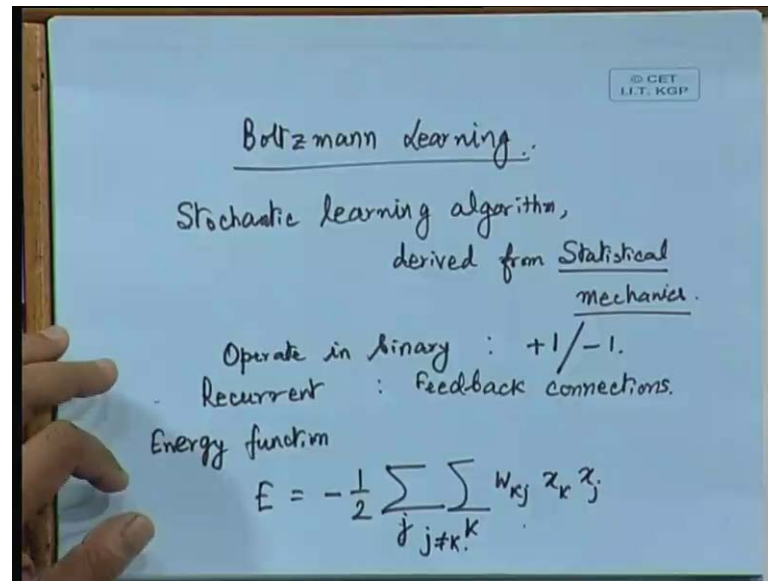 © CET
I.I.T. KGP
Boltzmann Learning.
Stochastic learning algorithm,
derived from Statistical
mechanics.
Operate in binary : +1/-1.
Recurrent : Feedback connections.
Energy function
E = -1/2 Σ_j Σ_k w_kj x_k x_j
j≠k.